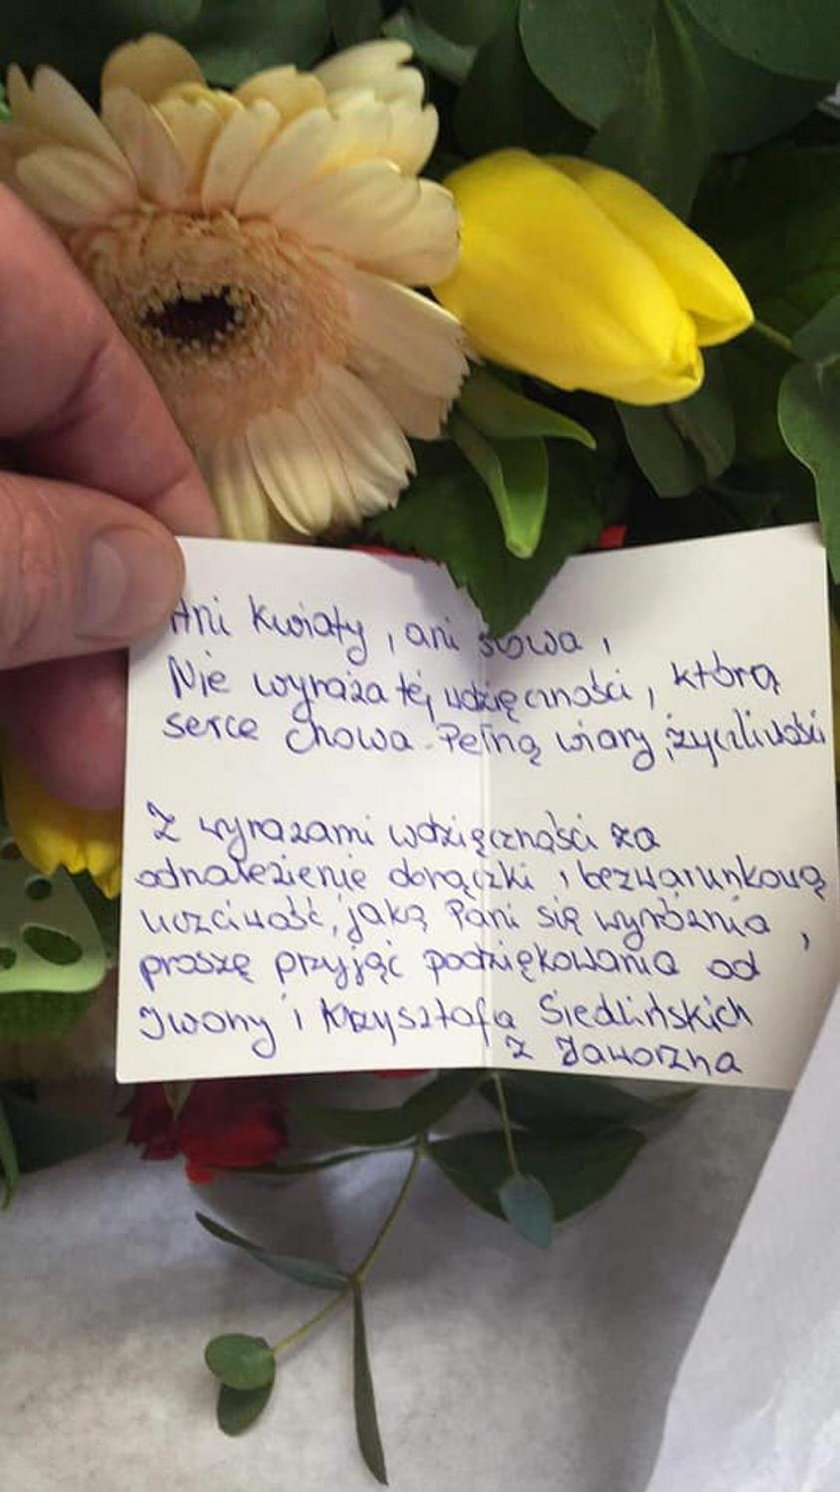 Ani kwiaty, ani słowa,
Nie wyraża tej wdzięczności, którą
serce chowa. Pełną wiary, życzliwości
Z wyrazami wdzięczności za
odnalezienie obrączki, bezwarunkową
uczciwość, jaką Pani się wyróżnia,
proszę przyjąć podziękowania od
Iwony i Krzysztofa Siedlińskich
z Jaworzna